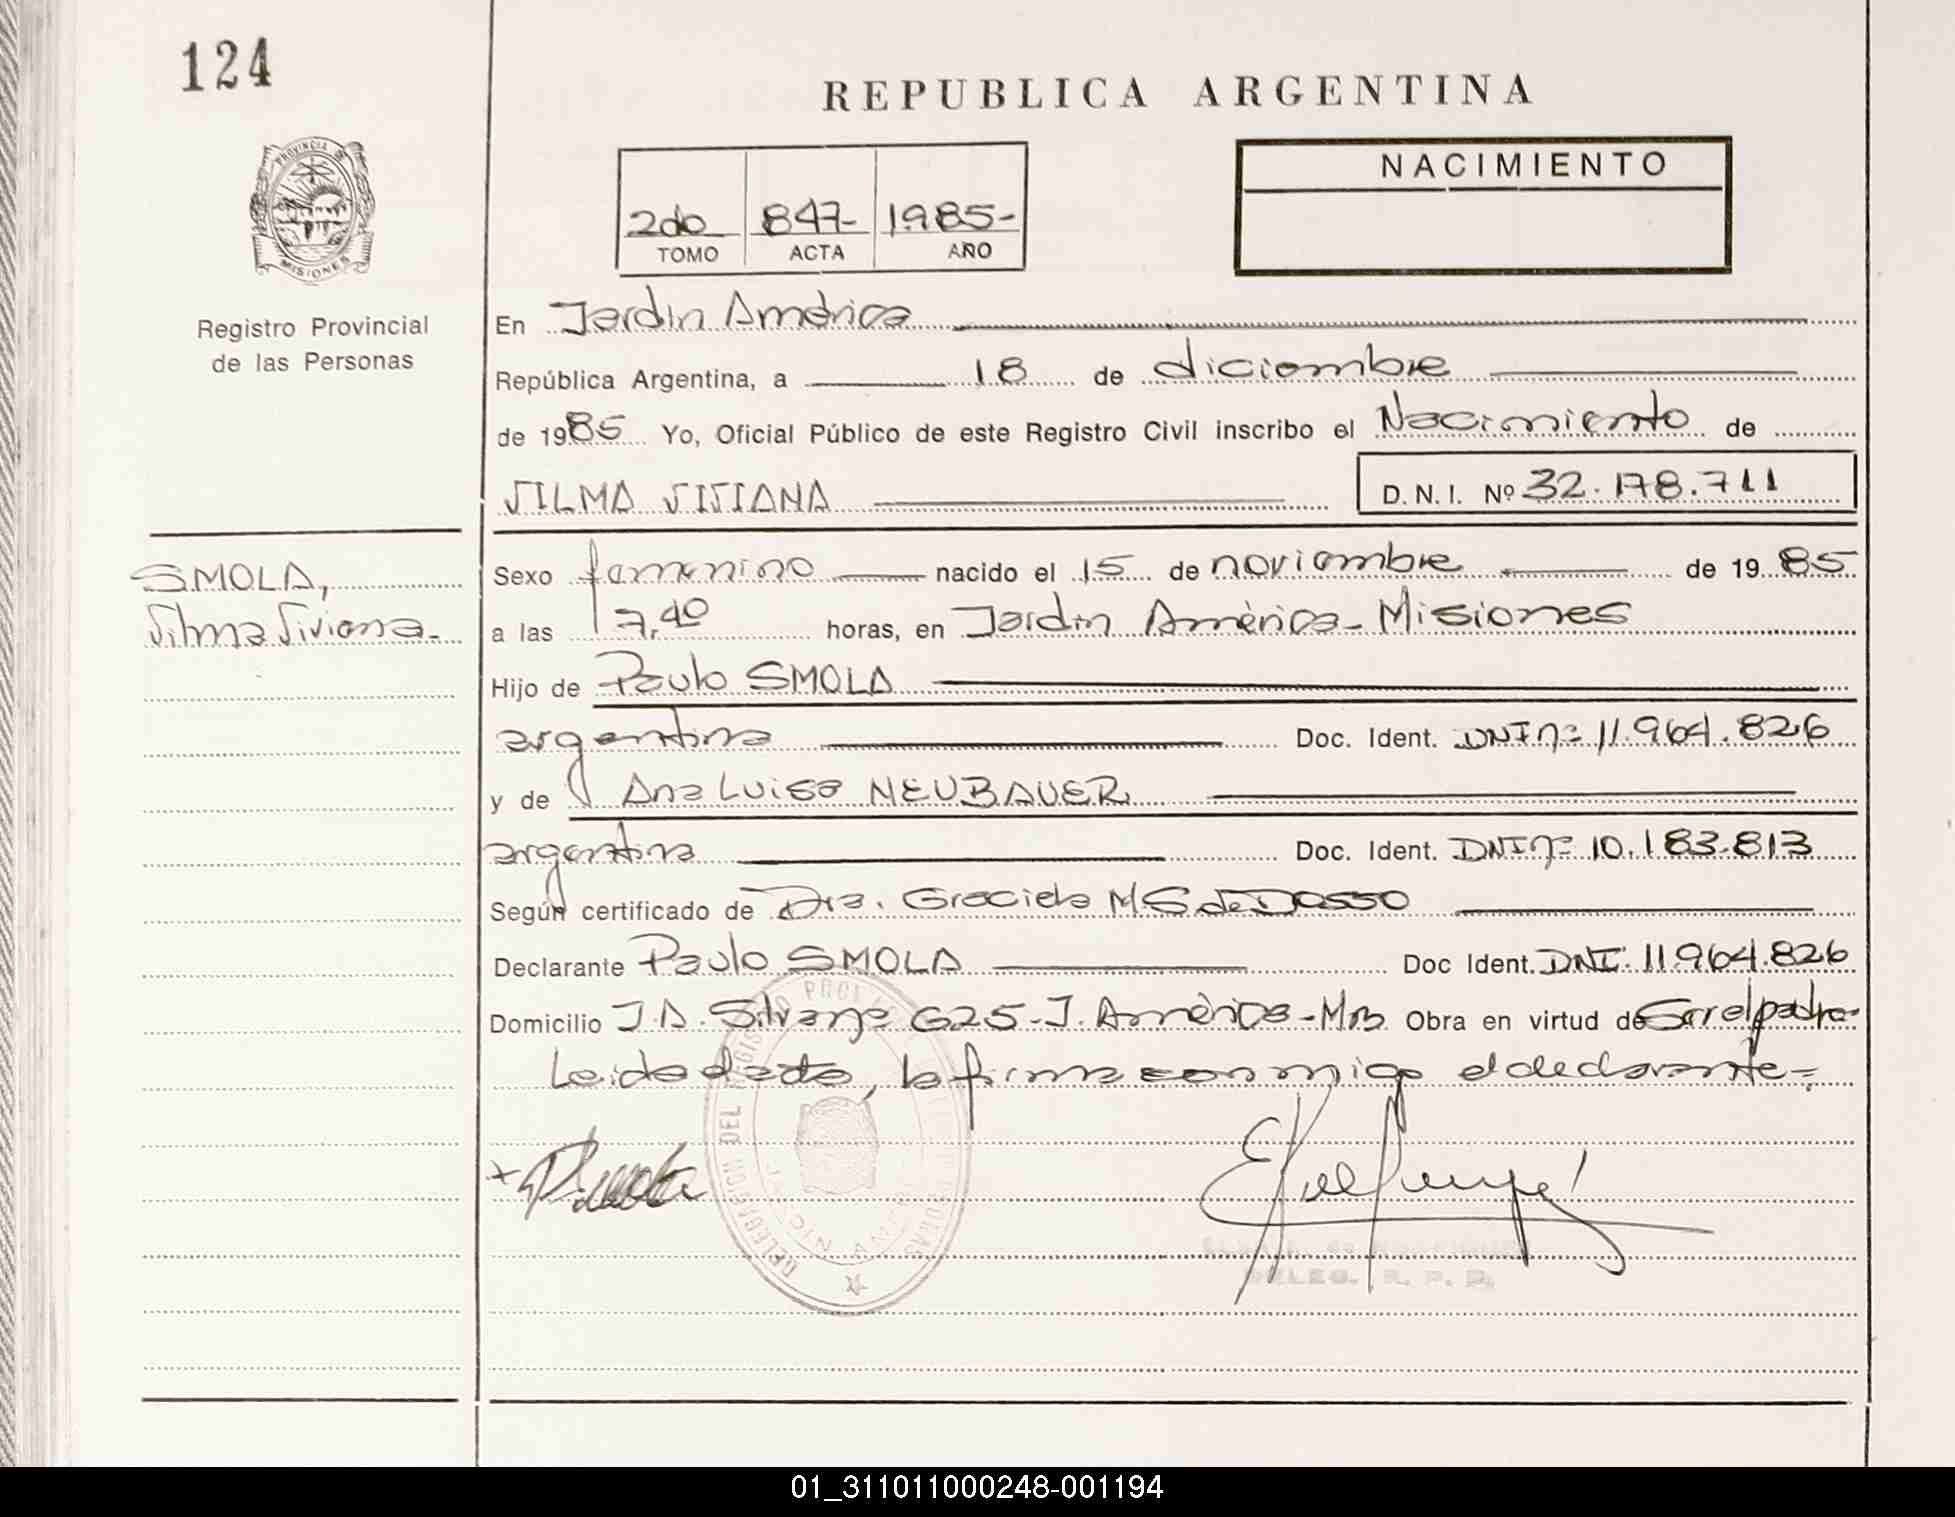 124
REPUBLICA ARGENTINA
PROVINCIA DE
MISIONES
Registro Provincial
de las Personas
2do 847- 1985-
TOMO ACTA AÑO
NACIMIENTO
En Jardín América
República Argentina, a 18 de diciembre
de 1985 Yo, Oficial Público de este Registro Civil inscribo el Nacimiento de
SILMA VIVIANA D.N.I. Nº 32.178.711
SMOLA,
Silma Viviana.-
Sexo femenino nacido el 15 de noviembre de 1985
a las 17,40 horas, en Jardín América - Misiones
Hijo de Paulo SMOLA
argentina Doc. Ident. DNI nº 11.964.826
y de Ana Luisa NEUBAUER
argentina Doc. Ident. DNI nº 10.183.813
Según certificado de Dra. Graciela M S de Dasso
Declarante Paulo SMOLA Doc Ident. DNI. 11.964.826
Domicilio J.A. 625-J. América - Mnes Obra en virtud de Ser el padre-
Leida el acta, la firma conmigo el declarante=
DELEG. R. P. P.
01_311011000248-001194